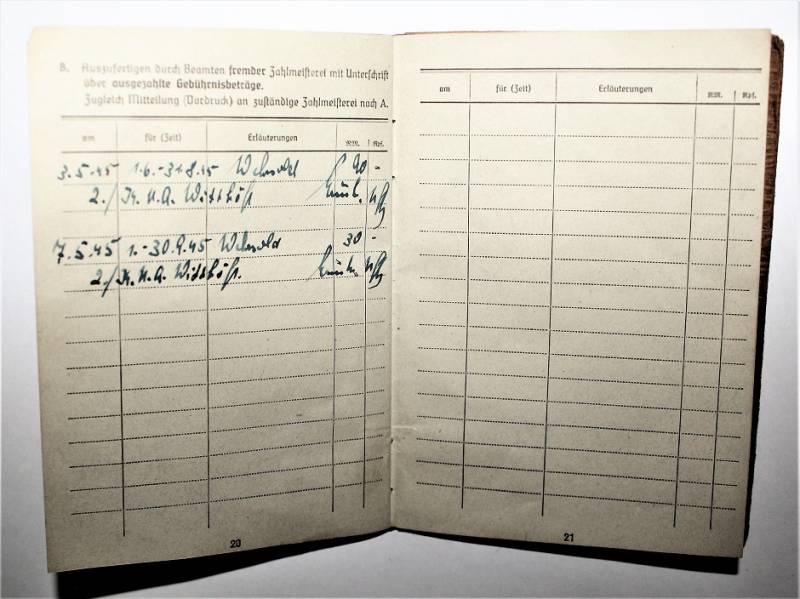 B. Auszufertigen durch Beamten fremder Zahlmeisterei mit Unterschrift
über ausgezahlte Gebührnisbeträge.
Zugleich Mitteilung (Vordruck) an zuständige Zahlmeisterei nach A.
am für (Zeit) Erläuterungen RM. Rpf.
3.5.45 1.6.-31.8.45 Wehrsold 90 -
2./
7.5.45 1.-30.9.45 Wehrsold 30 -
2./
20
am für (Zeit) Erläuterungen RM. Rpf.
21